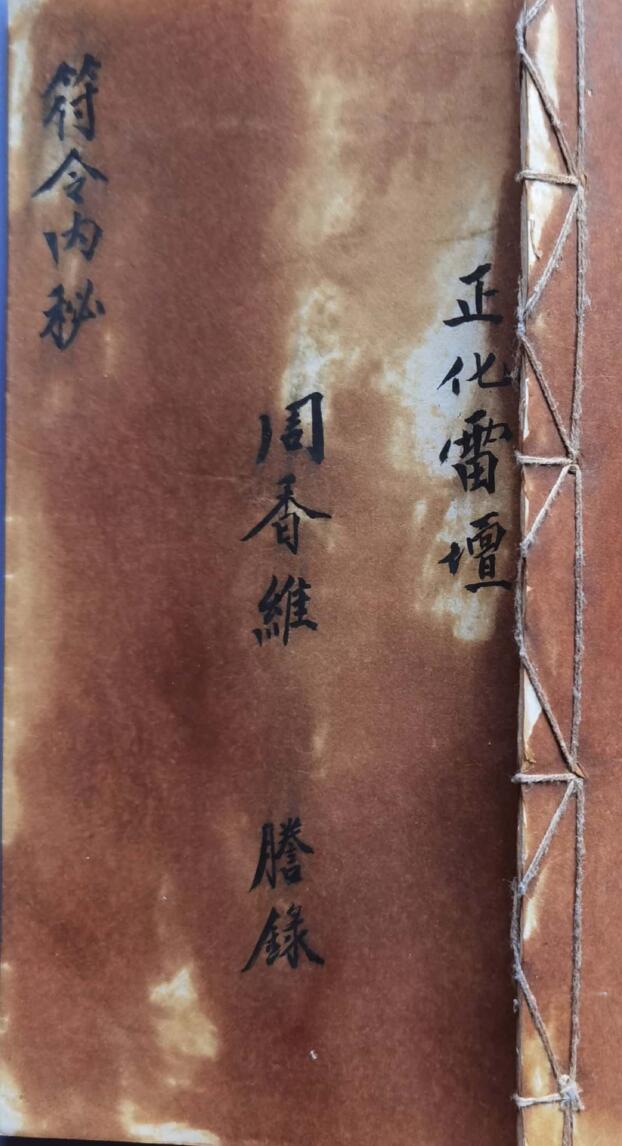 正化雷壇
周香維 謄錄
符令内秘